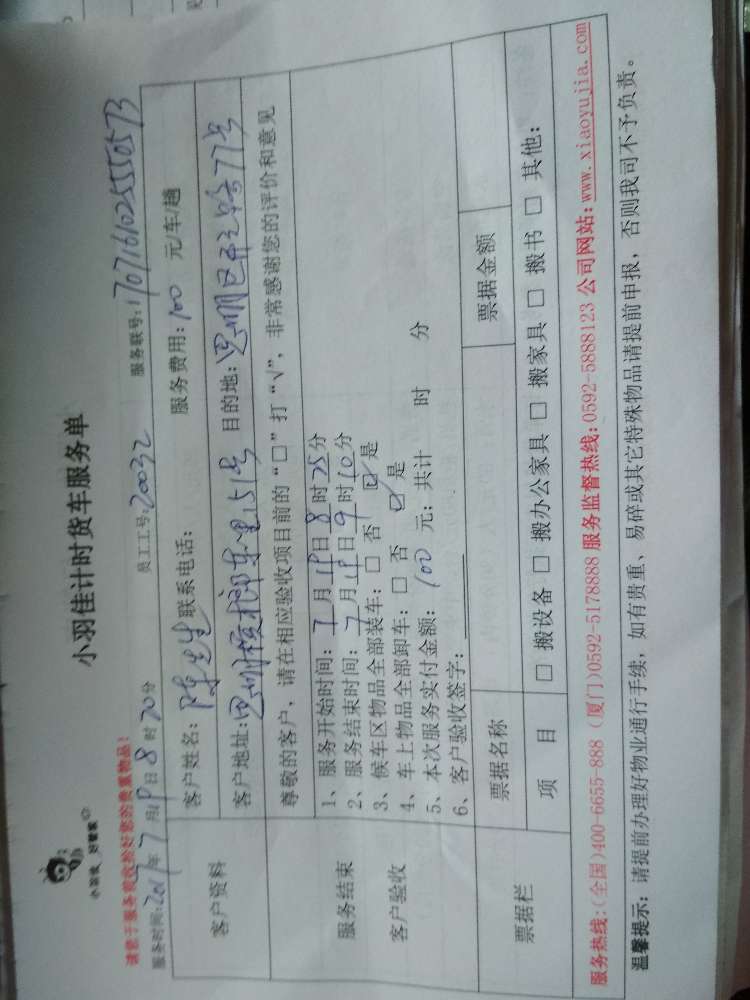 小羽佳计时货车服务单
小羽佳 好管家
请您于服务前收拾好您的贵重物品!
服务时间:2017年7月19日8时20分 员工工号:20032 服务联号:1707161025550573
客户资料
客户姓名:陈先生 联系电话: 服务费用:100 元/车/趟
客户地址:思明 东里151号 目的地:思明区 路77号
服务结束
客户验收
尊敬的客户,请在相应验收项目前的“□”打“√”,非常感谢您的评价和意见
1、服务开始时间:7月19日8时25分
2、服务结束时间:7月19日9时10分
3、候车区物品全部装车:□ 否 ☑ 是
4、车上物品全部卸车:□ 否 ☑ 是
5、本次服务实付金额:100 元;共计 时 分
6、客户验收签字:
票据栏
票据名称 票据金额
项 目 □ 搬设备 □ 搬办公家具 □ 搬家具 □ 搬书 □ 其他:
服务热线:(全国)400-6655-888 (厦门)0592-5178888 服务监督热线:0592-5888123 公司网站:www.xiaoyujia.com
温馨提示:请提前办理好物业通行手续,如有贵重、易碎或其它特殊物品请提前申报,否则我司不予负责。